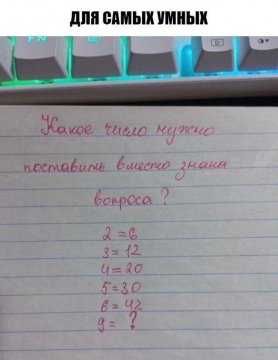 ДЛЯ САМЫХ УМНЫХ
Какое число нужно
поставить вместо знака
вопроса?
2=6
3=12
4=20
5=30
6=42
9= ?